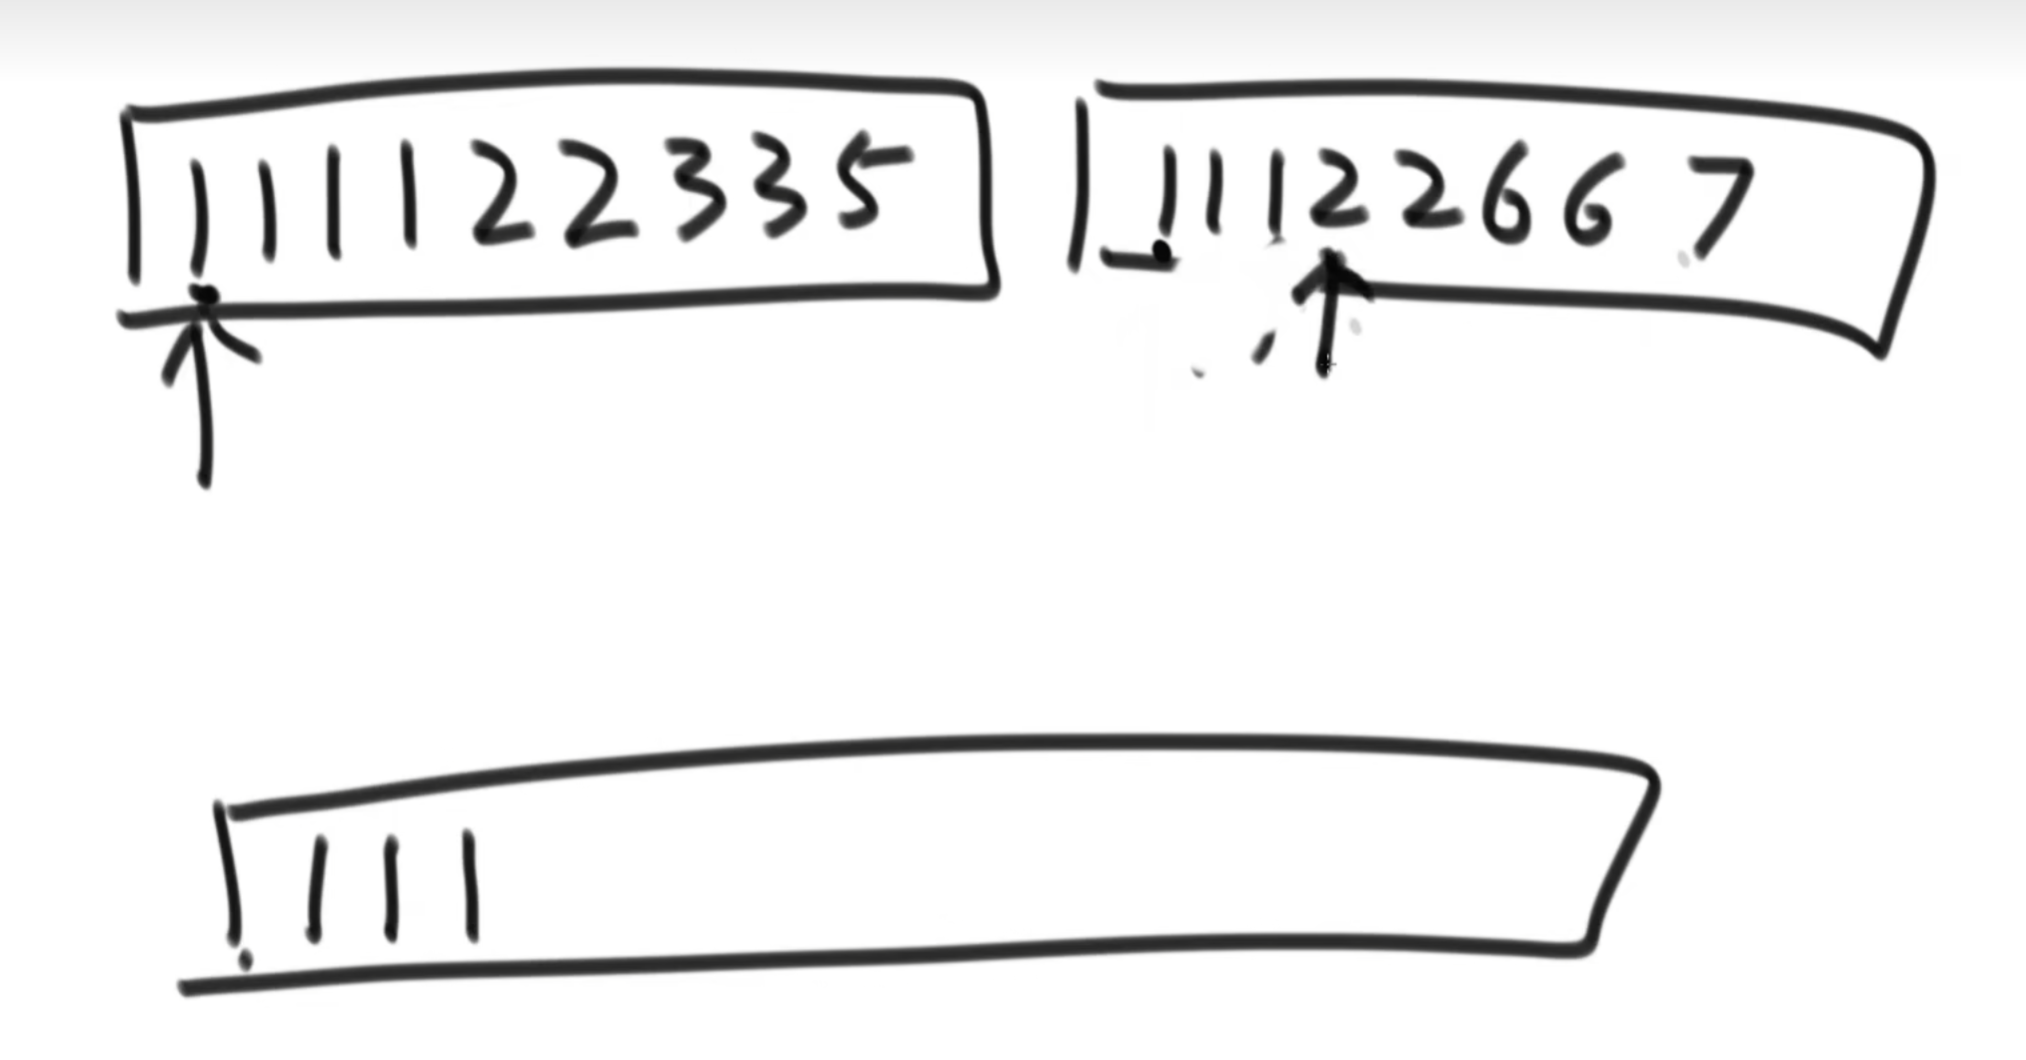 111122335
11122667
111